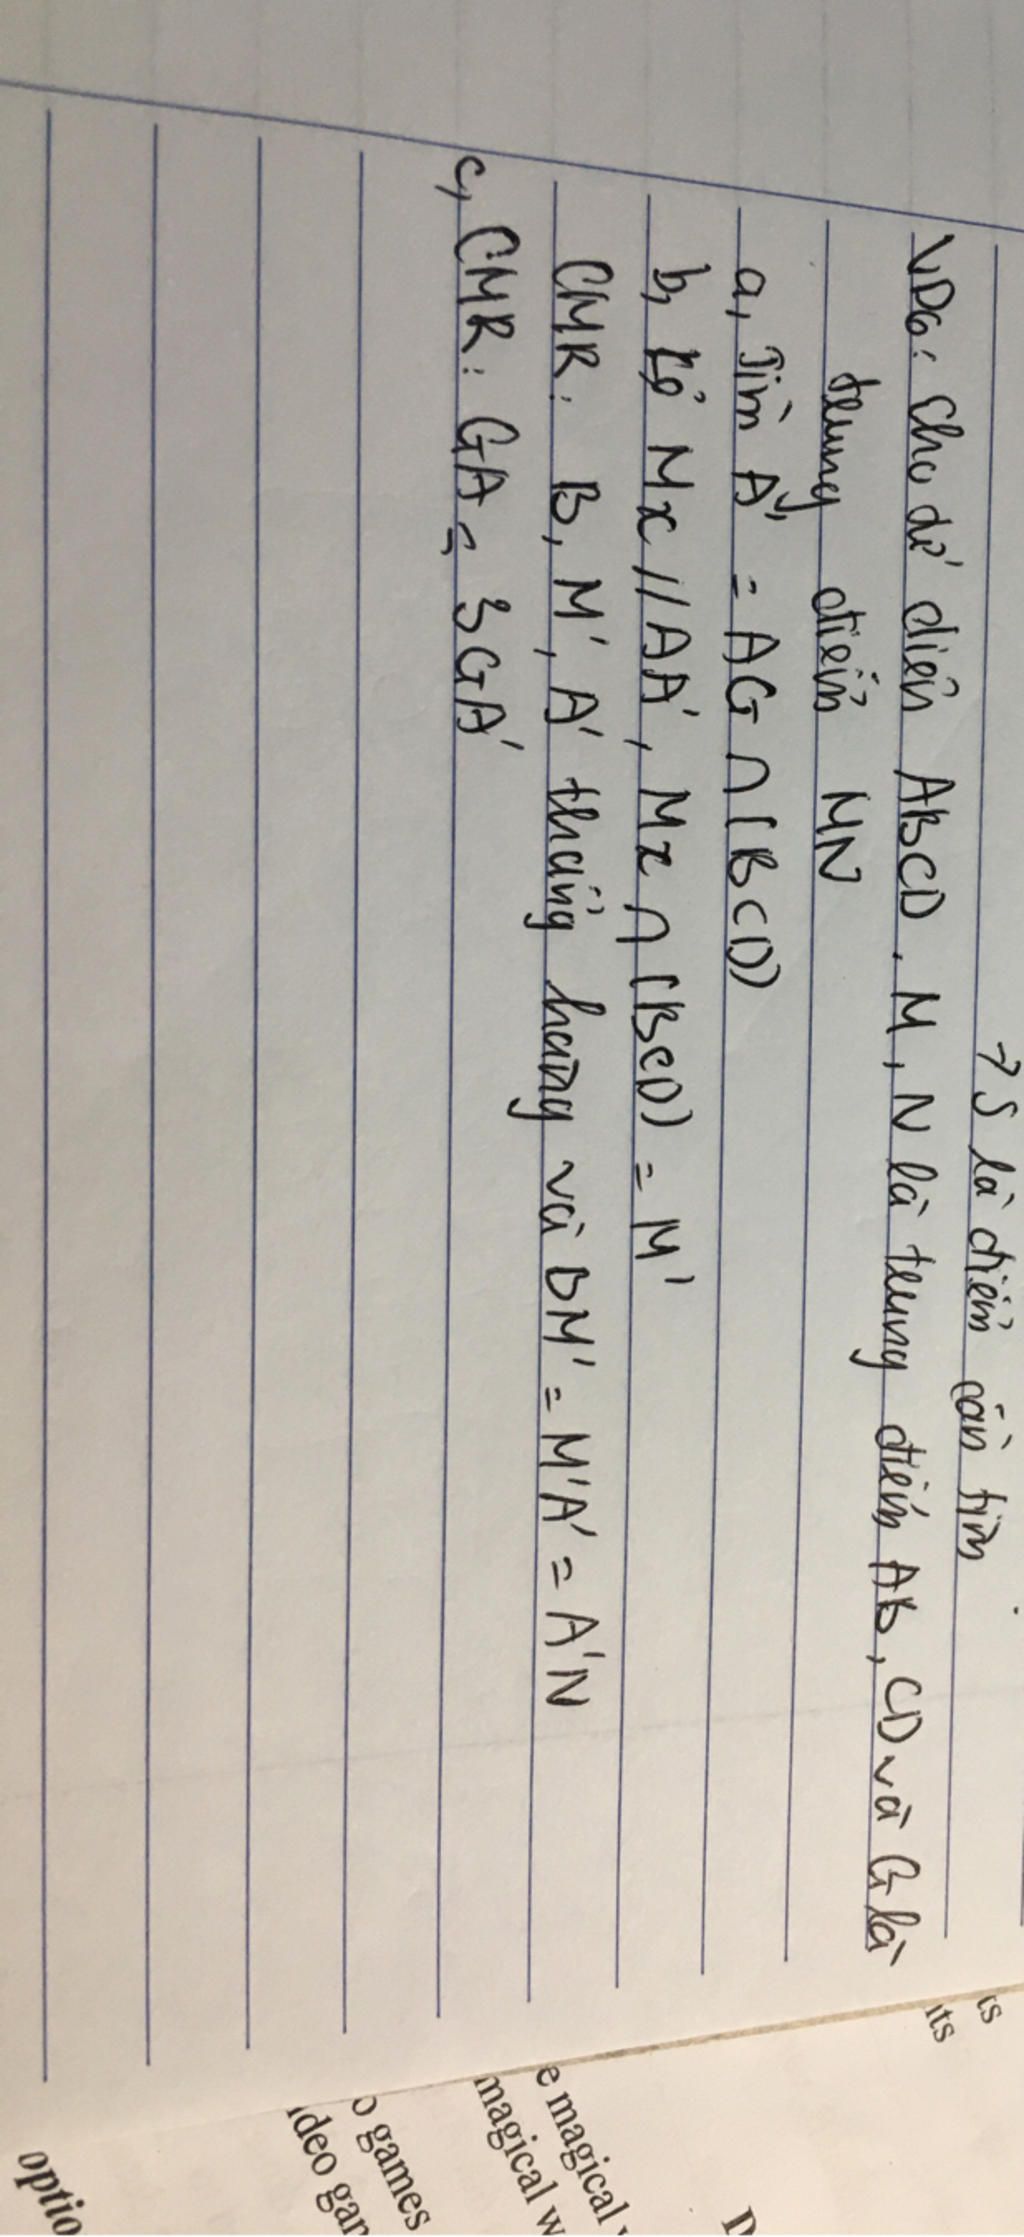 → S là điểm cần tìm
VD6: Cho tứ diện ABCD. M, N là trung điểm AB, CD và G là
trung điểm MN
a, Tìm A' = AG ∩ (BCD)
b, Kẻ Mx // AA', Mx ∩ (BCD) = M'
CMR: B, M', A' thẳng hàng và BM' = M'A' = A'N
c, CMR: GA = 3GA'
ts
its
D
e magical
magical w
o games
ideo gar
optio